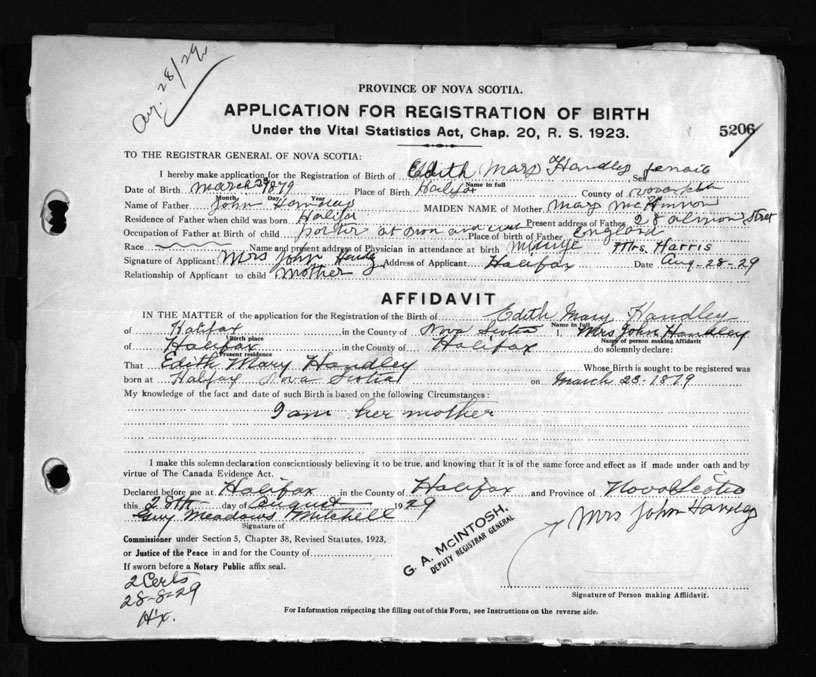 Aug. 28/29
PROVINCE OF NOVA SCOTIA.
APPLICATION FOR REGISTRATION OF BIRTH
Under the Vital Statistics Act, Chap. 20, R. S. 1923.
5206
TO THE REGISTRAR GENERAL OF NOVA SCOTIA:
I hereby make application for the Registration of Birth of Edith Mary Handley Sex
Name in full
Date of Birth March 1879 Place of Birth Halifax County of
Month Day Year
Name of Father John MAIDEN NAME of Mother Mary
Residence of Father when child was born Halifax Present address of Father 28 Street
Occupation of Father at Birth of child Place of birth of Father England
Race Name and present address of Physician in attendance at birth Mrs. Harris
Signature of Applicant Mrs John Handley Address of Applicant Halifax Date Aug-28-29
Relationship of Applicant to child mother
AFFIDAVIT
IN THE MATTER of the application for the Registration of the Birth of Edith Mary Handley
Name in full
of Halifax in the County of Nova Scotia I, Mrs John Handley
Birth place Name of person making Affidavit
of Halifax in the County of Halifax do solemnly declare:
Present residence
That Edith Mary Handley Whose Birth is sought to be registered was
born at Halifax Nova Scotia on March 23-1879
My knowledge of the fact and date of such Birth is based on the following Circumstances:
I am her mother
I make this solemn declaration conscientiously believing it to be true, and knowing that it is of the same force and effect as if made under oath and by
virtue of The Canada Evidence Act.
Declared before me at Halifax in the County of Halifax and Province of Nova Scotia
this 28th day of August 1929
Guy Meadows Mitchell
Mrs John Handley
Signature of
Commissioner under Section 5, Chapter 38, Revised Statutes, 1923,
or Justice of the Peace in and for the County of
If sworn before a Notary Public affix seal.
G. A. McINTOSH,
DEPUTY REGISTRAR GENERAL
2 Certs
28-8-29
Hx.
Signature of Person making Affidavit.
For Information respecting the filling out of this Form, see Instructions on the reverse side.